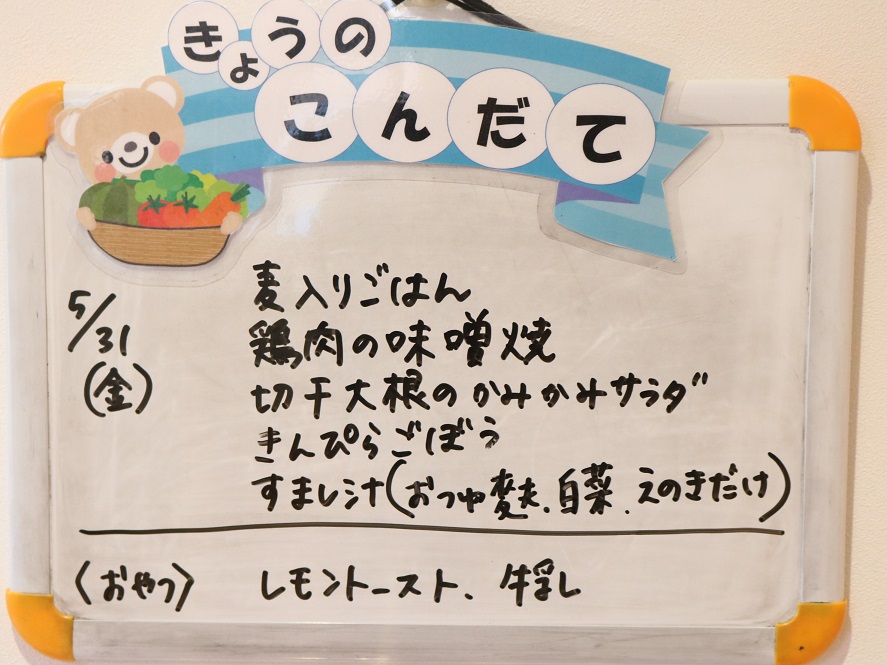 きょうの
こんだて
5/31
(金)
麦入りごはん
鶏肉の味噌焼
切干大根のかみかみサラダ
きんぴらごぼう
すまし汁(おつゆ麩、白菜、えのきだけ)
〈おやつ〉 レモントースト、牛乳